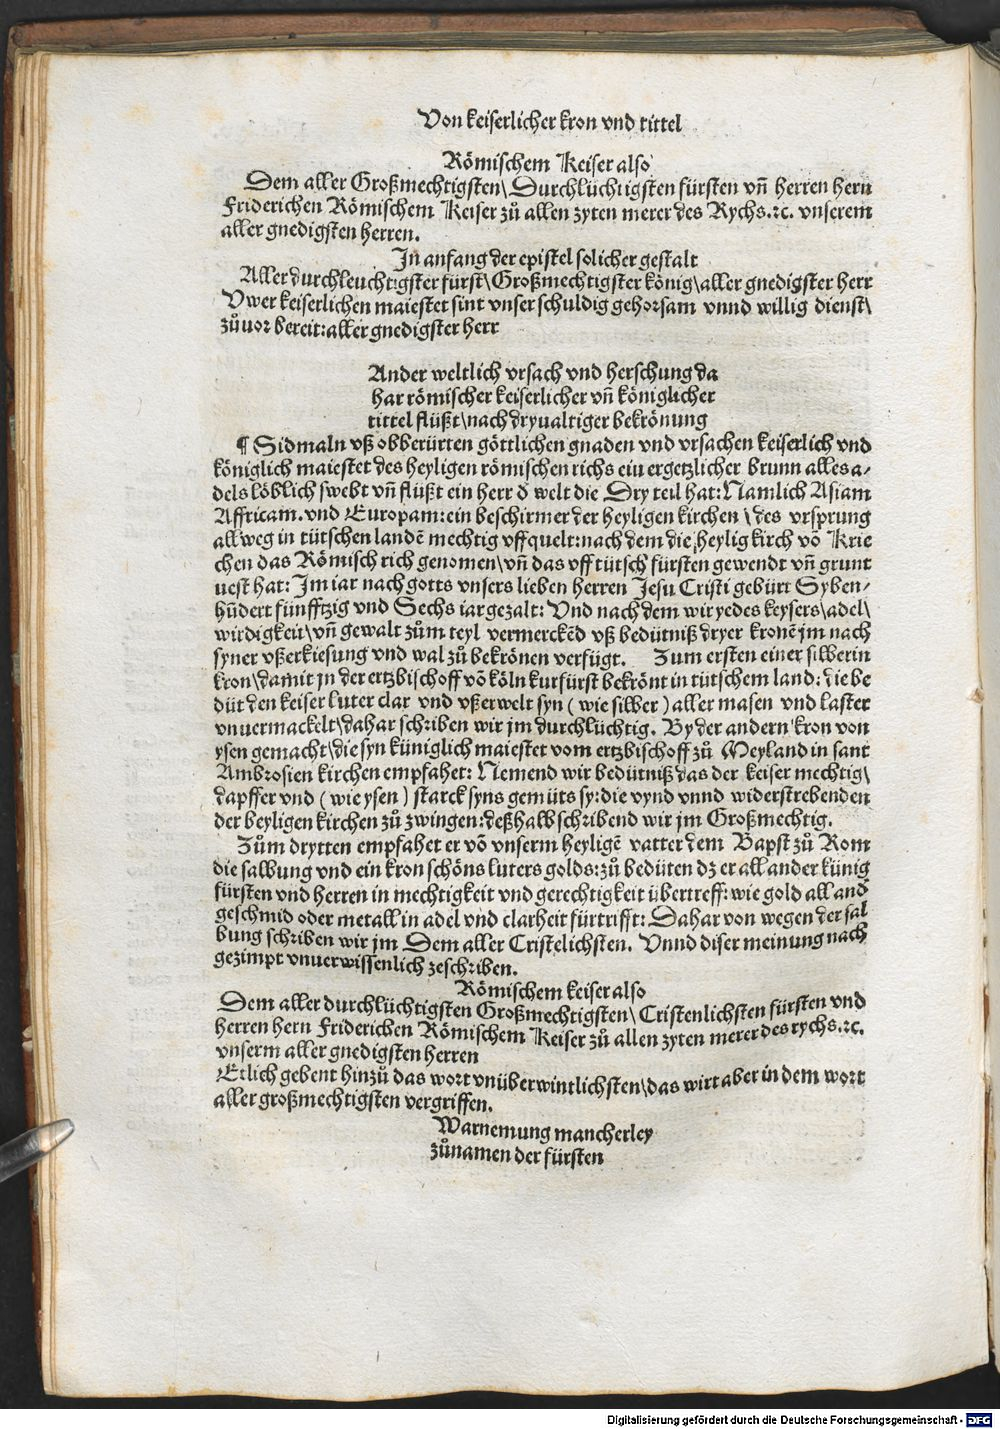 Von keiserlicher kron vnd tittel
Römischem Keiser also
Dem aller Großmechtigsten\ Durchlüchtigsten fürsten vn̄ herren hern
Friderichen Römischem Keiser zů allen zyten merer des Rychs.ꝛc. vnserem
aller gnedigsten herren.
In anfang der epistel solicher gestalt
Aller durchleuchtigster fürst\ Großmechtigster könig\ aller gnedigster herr
Vwer keiserlichen maiestet sint vnser schuldig gehorsam vnnd willig dienst\
zůuor bereit: aller gnedigster herr
Ander weltlich vrsach vnd herschung da
har römischer keiserlicher vn̄ königlicher
tittel flüßt\ nach dryualtiger bekrönung
¶ Sidmaln vß obberürten göttlichen gnaden vnd vrsachen keiserlich vnd
königlich maiestet des heyligen römischen richs ein ergetzlicher brunn alles a⸗
dels löblich swebt vn̄ flüßt ein herr d̕ welt die Dry teil hat: Namlich Asiam
Affricam. vnd Europam: ein beschirmer der heyligen kirchen \ des vrsprung
allweg in tütschen landē mechtig vffquelt: nach dem die heylig kirch vō Krie
chen das Römisch rich genomen\ vn̄ das vff tütsch fürsten gewendt vn̄ grunt
uest hat: Im iar nach gotts vnsers lieben herren Jesu Cristi gebürt Syben⸗
hūdert fünfftzig vnd Sechs iar gezalt: Vnd nach dem wir yedes keysers\ adel\
wirdigkeit\ vn̄ gewalt zům teyl vermerckēd vß bedütniß dryer kronē jm nach
syner vßerkiesung vnd wal zů bekrönen verfügt. Zum ersten einer silberin
kron\ damit jn der ertzbischoff vō köln kurfürst bekrönt in tütschem land: die be
düt den keiser luter clar vnd vßerwelt syn ( wie silber ) aller masen vnd laster
vnuermackelt\ dahar schriben wir jm durchlüchtig. By der andern kron von
ysen gemacht\ die syn küniglich maiestet vom ertzbischoff zů Meyland in sant
Ambrosien kirchen empfahet: Nemend wir bedütniß das der keiser mechtig\
dapffer vnd ( wie ysen ) starck syns gemüts sy: die vynd vnnd widerstrebenden
der heyligen kirchen zů zwingen: deßhalb schribend wir jm Großmechtig.
Zům drytten empfahet er vō vnserm heyligē vatter dem Bapst zů Rom
die salbung vnd ein kron schöns luters golds: zů bedüten dz er all ander künig
fürsten vnd herren in mechtigkeit vnd gerechtigkeit übertreff: wie gold all and̕
geschmid oder metall in adel vnd clarheit fürtrifft: Dahar von wegen der sal
bung schriben wir jm Dem aller Cristelichsten. Vnnd diser meinung nach
gezimpt vnuerwissenlich zeschriben.
Römischem keiser also
Dem aller durchlüchtigsten Großmechtigsten\ Cristenlichsten fürsten vnd
herren hern Friderichen Römischem Keiser zů allen zyten merer des rychs.ꝛc.
vnserm aller gnedigsten herren
Etlich gebent hinzů das wort vnüberwintlichsten\ das wirt aber in dem wort
aller großmechtigsten vergriffen.
Warnemung mancherley
zůnamen der fürsten
Digitalisierung gefördert durch die Deutsche Forschungsgemeinschaft - DFG